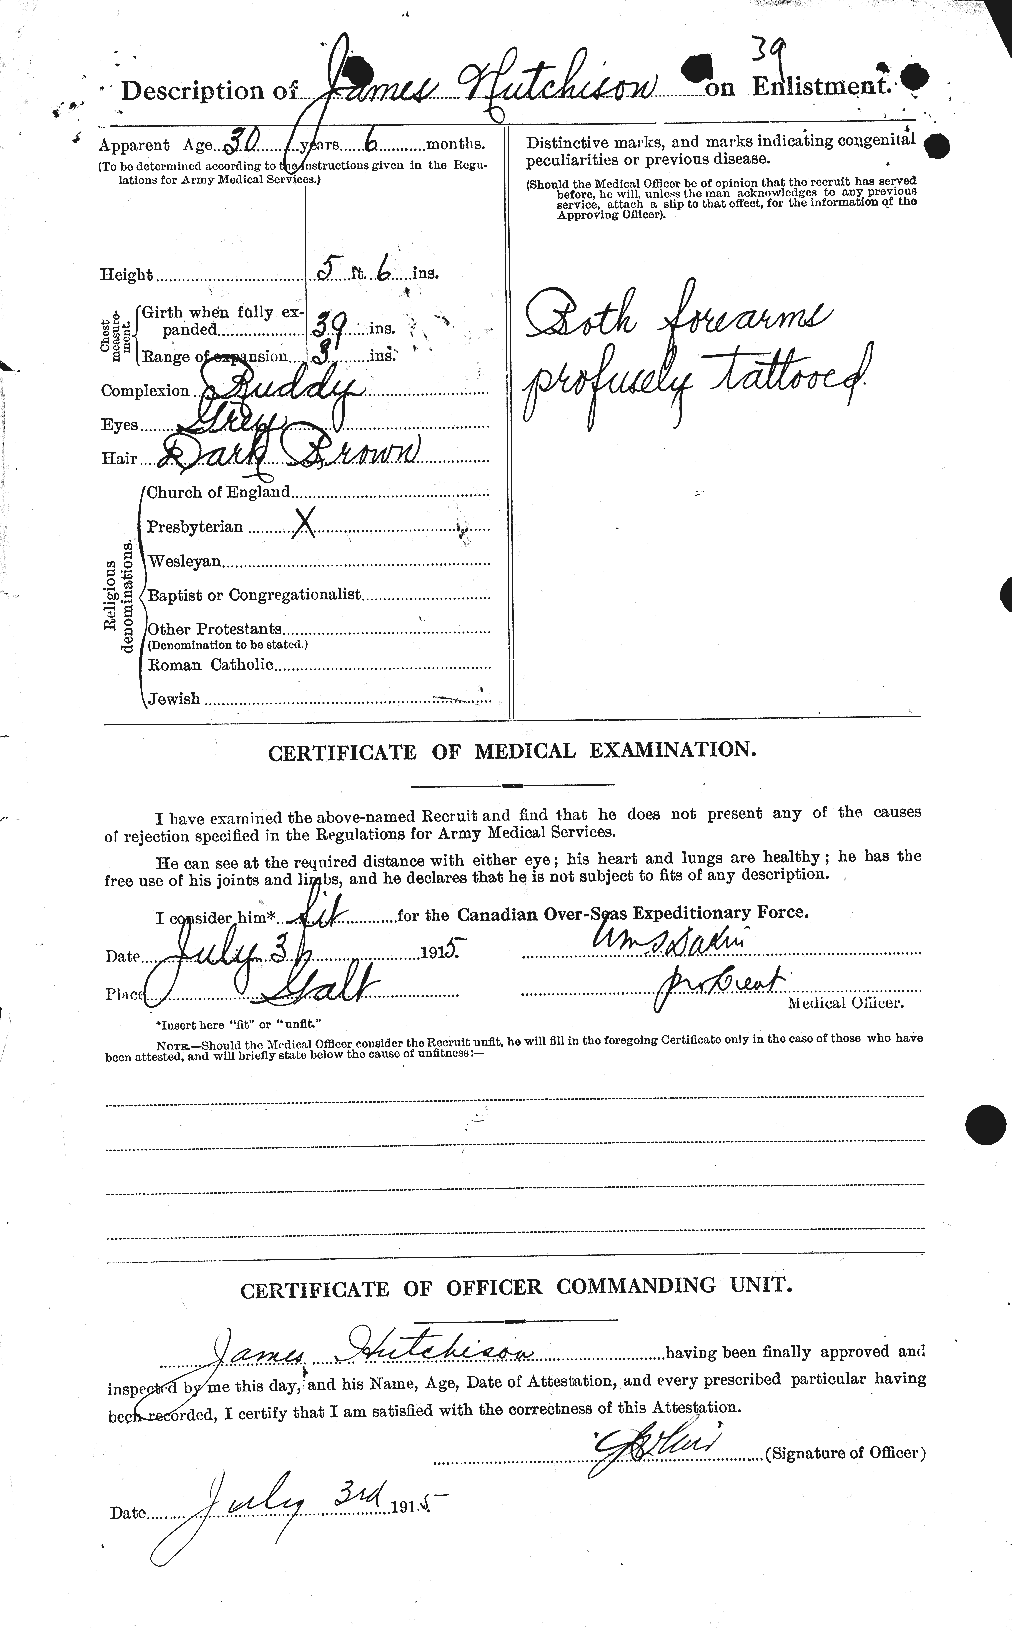 39
Description of James Hutchison on Enlistment.
Apparent Age 30 years 6 months.
(To be determined according to the instructions given in the Regu-
lations for Army Medical Services.)
Height 5 ft. 6 ins.
Chest measure-ment
Girth when fully ex-
panded 39 ins.
Range of expansion 3 ins.
Complexion Ruddy
Eyes Grey
Hair Dark Brown
Religious denominations.
Church of England
Presbyterian X
Wesleyan
Baptist or Congregationalist
Other Protestants
(Denomination to be stated.)
Roman Catholic
Jewish
Distinctive marks, and marks indicating congenital
peculiarities or previous disease.
(Should the Medical Officer be of opinion that the recruit has served
before, he will, unless the man acknowledges to any previous
service, attach a slip to that effect, for the information of the
Approving Officer).
Both forearms
profusely tattooed.
CERTIFICATE OF MEDICAL EXAMINATION.
I have examined the above-named Recruit and find that he does not present any of the causes
of rejection specified in the Regulations for Army Medical Services.
He can see at the required distance with either eye; his heart and lungs are healthy; he has the
free use of his joints and limbs, and he declares that he is not subject to fits of any description.
I consider him* fit for the Canadian Over-Seas Expeditionary Force.
Date July 3 1915.
Place Galt
Medical Officer.
*Insert here "fit" or "unfit."
NOTE.—Should the Medical Officer consider the Recruit unfit, he will fill in the foregoing Certificate only in the case of those who have
been attested, and will briefly state below the cause of unfitness:—
CERTIFICATE OF OFFICER COMMANDING UNIT.
James Hutchison having been finally approved and
inspected by me this day, and his Name, Age, Date of Attestation, and every prescribed particular having
been recorded, I certify that I am satisfied with the correctness of this Attestation.
(Signature of Officer)
Date July 3rd 1915